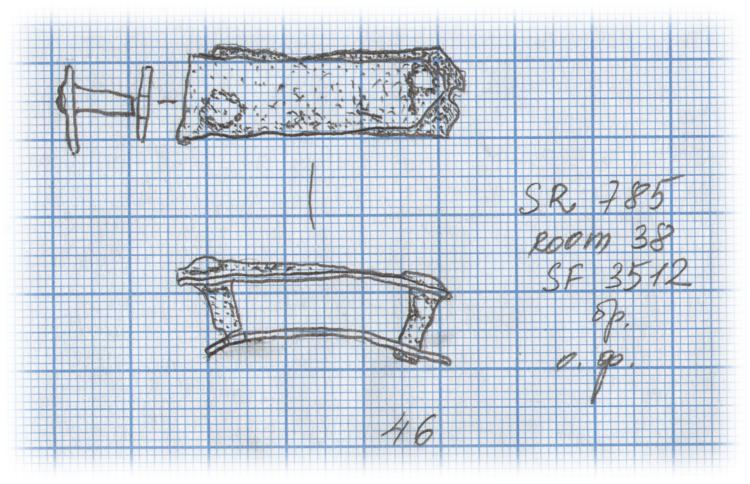 SR 785
ROOM 38
SF 3512
бр.
о. ф.
46